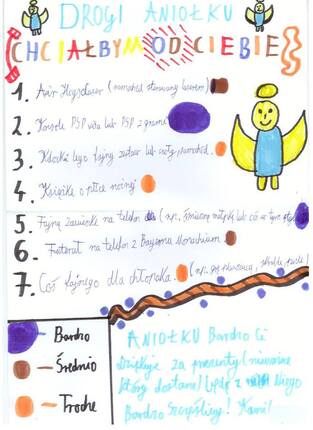 DROGI ANIOŁKU
CHCIAŁBYM OD CIEBIE
1. Air (samochód sterowany
2. Konsole PSP vita lub PSP z grami
3. Klocki lego fajny zestaw lub samochód.
4. Książkę o piłce nożnej
5. Fajną zawieszkę na telefon (np. śmieszną małpkę lub coś w tym stylu)
6. Futerał na telefon z Bayernu Monachium
7. Coś fajnego dla chłopaka. (np. gra planszowa,
- Bardzo
- Średnio
- Trochę
ANIOŁKU Bardzo Ci
dziękuję za prezenty
które dostanę będę z Niego
Bardzo Szczęśliwy! Kamil